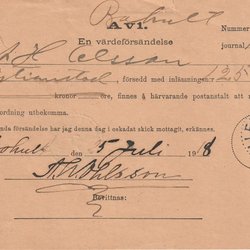 Båhult
Avi. Nummer
En värdeförsändelse journal
H Olsson
Kristianstad, försedd med inlämnings- 125
kronor öre, finnes å härvarande postanstalt att m
ordning utbekomma.
nda försändelse har jag denna dag i oskadat skick mottagit, erkännes.
den 5 Juli 1918
Ohlsson
Bevittnas: